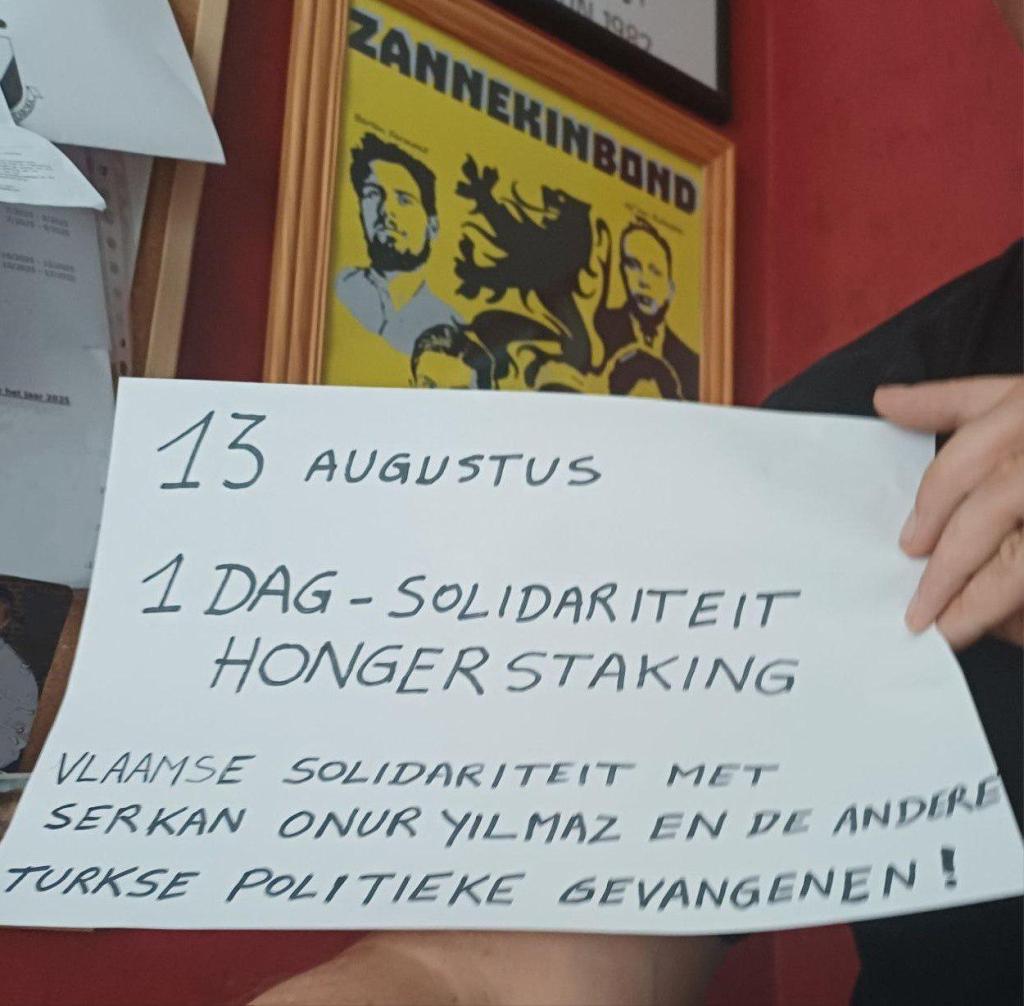 ZANNEKINBOND
1982
het jaar 2025
13 AUGUSTUS
1 DAG - SOLIDARITEIT
HONGERSTAKING
VLAAMSE SOLIDARITEIT MET
SERKAN ONUR YILMAZ EN DE ANDERE
TURKSE POLITIEKE GEVANGENEN!